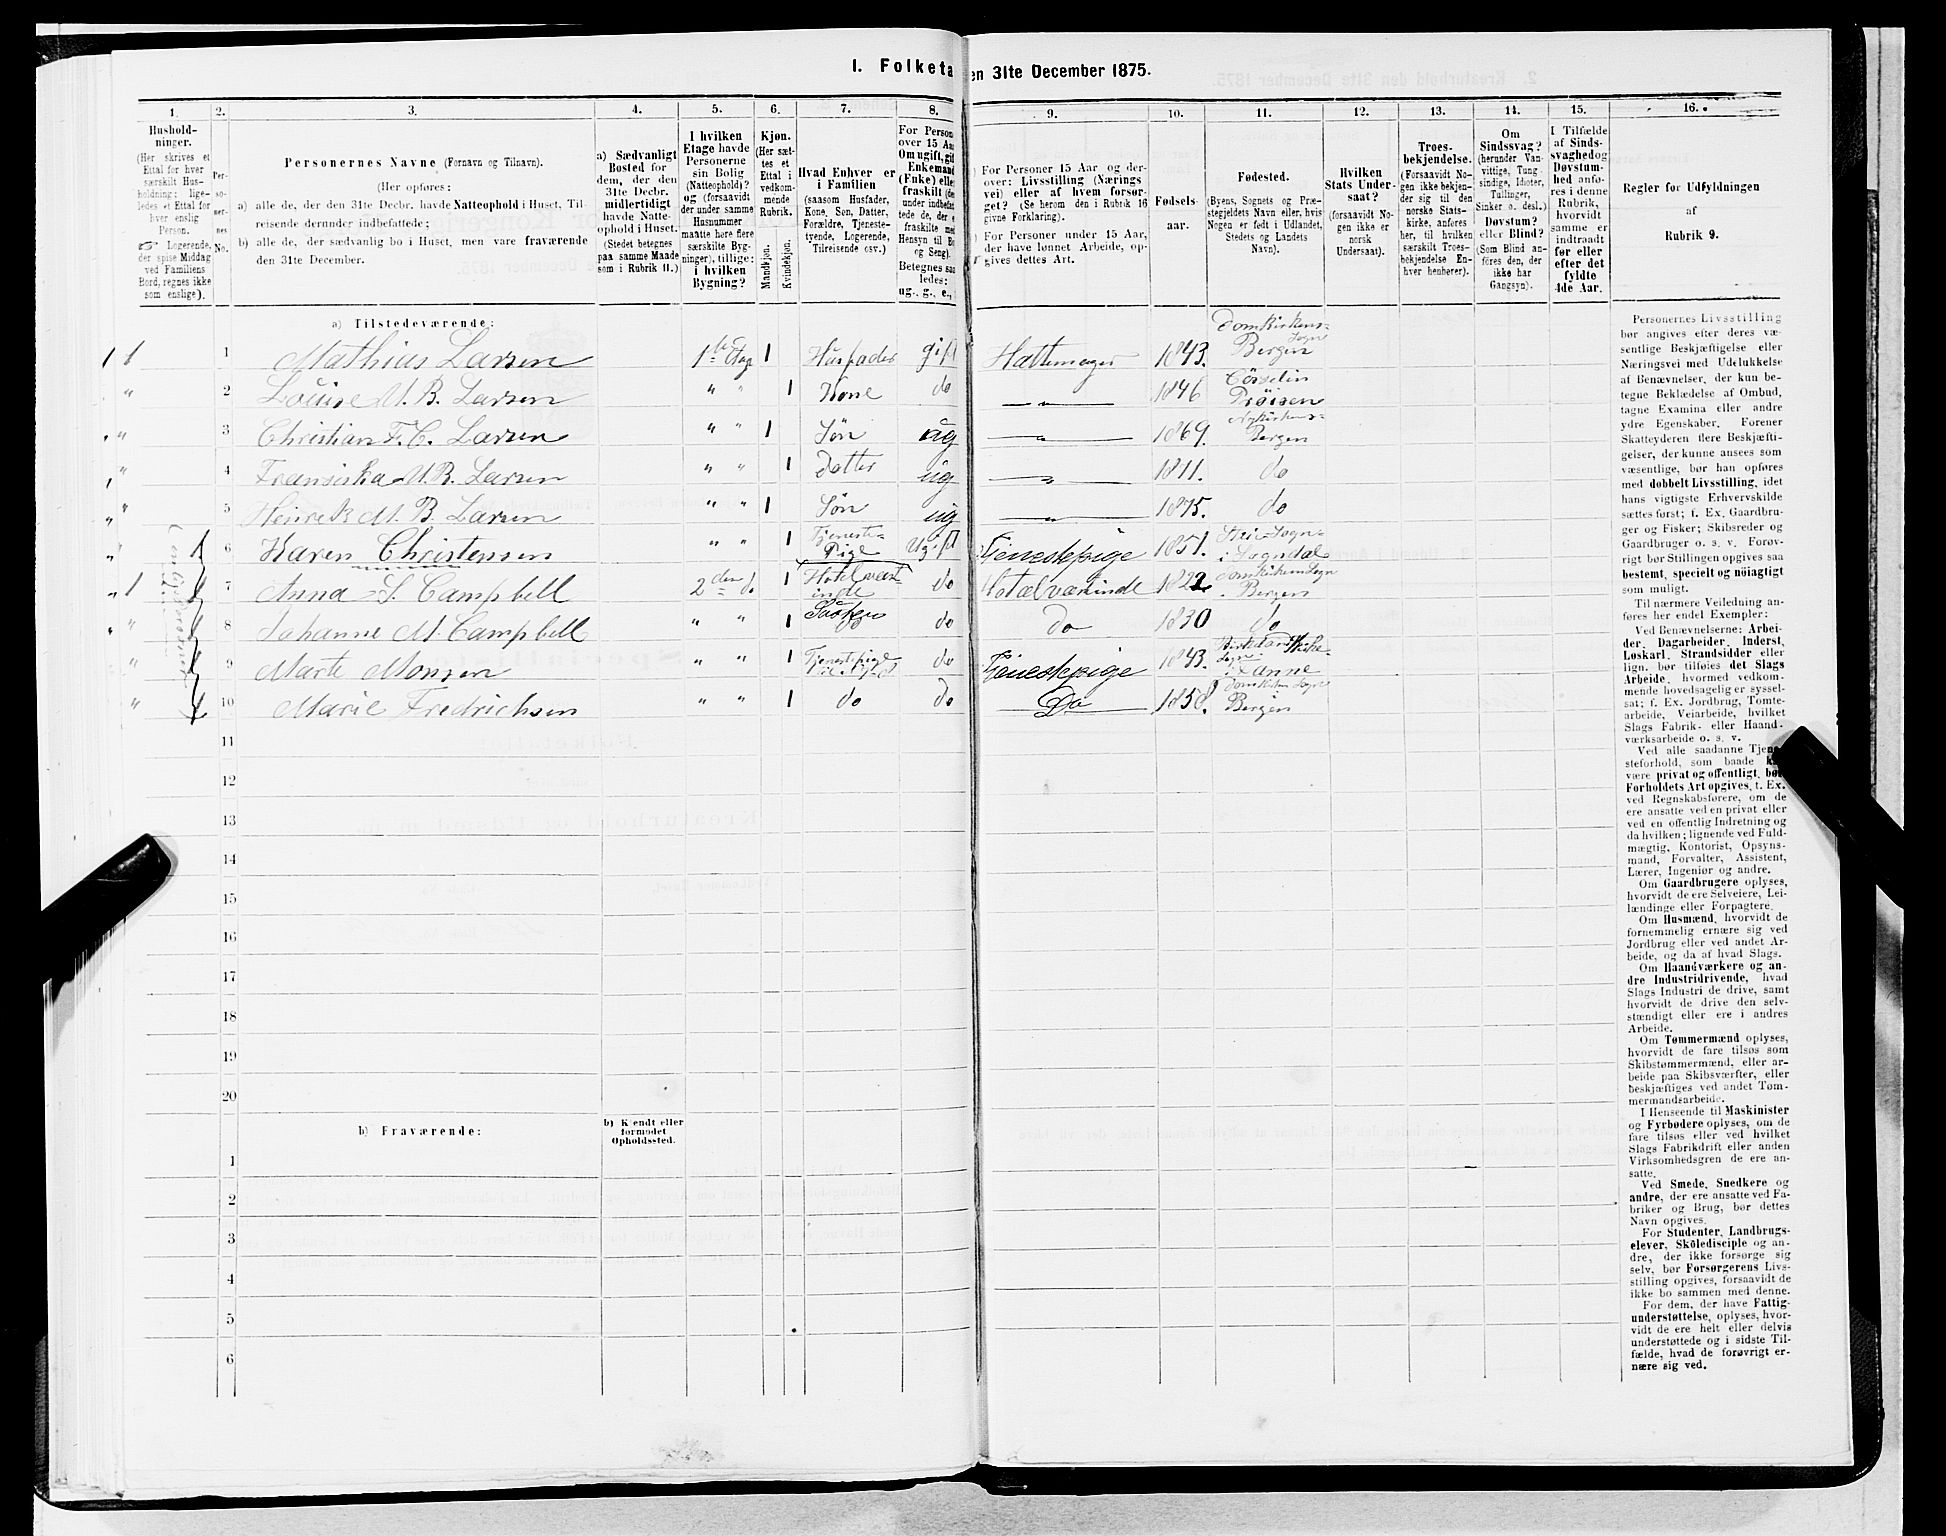 I. Folketa en 31te December 1875.
1.
2.
3.
4.
5.
6.
7.
8.
9.
10.
11.
12.
13.
14.
15.
16.
Hushold-
ninger.
(Her skrives et
Ettal for hver
særskilt Hus-
holdning; lige-
ledes et Ettal for
hver enslig
Person.
☞ Logerende,
der spise Middag
ved Familiens
Bord, regnes ikke
som enslige).
Per-
so-
ner-
nes
No.
Personernes Navne (Fornavn og Tilnavn).
(Her opføres:
a) alle de, der den 31te Decbr. havde Natteophold i Huset, Til-
reisende derunder indbefattede;
b) alle de, der sædvanlig bo i Huset, men vare fraværende
den 31te December.
a) Sædvanligt
Bosted for
dem, der den
31te Decbr.
midlertidigt
havde Natte-
ophold i Huset.
(Stedet betegnes
paa samme Maade
som i Rubrik 11.)
I hvilken
Etage havde
Personerne
sin Bolig
(Natteophold)?
og (forsaavidt
der under samme
Husnummer
maatte høre flere
særskilte Byg-
ninger), tillige:
i hvilken
Bygning?
Kjøn.
(Her sæt-
tes et
Ettal i
vedkom-
mende
Rubrik.
Mandkjøn.
Kvindekjøn.
Hvad Enhver er
i Familien
(saasom Husfader,
Kone, Søn, Datter,
Forældre, Tjeneste-
tyende, Logerende,
Tilreisende osv.)
For Person
over 15 Aa
Om ugift, gif
Enkemand
(Enke) elle
fraskilt (der
under indbefat
tede de, der e
fraskilte me
Hensyn til Bo
og Seng).
Betegnes saa
ledes:
ug., g., e.,
For Personer 15 Aar og der-
over: Livsstilling (Nærings
vei) eller af hvem forsør-
get? (Se herom den i Rubrik 16
givne Forklaring).
For Personer under 15 Aar,
der have lønnet Arbeide, op-
gives dettes Art.
Fødsels-
aar.
Fødested.
(Byens, Sognets og Præ-
stegjeldets Navn eller, hvis
Nogen er født i Udlandet,
Stedets og Landets
Navn).
Hvilken
Stats Under-
saat?
(forsaavidt No-
gen ikke er
norsk
Undersaat).
Troes-
bekjendelse.
(Forsaavidt No-
gen ikke bekjen-
der sig til den
norske Stats-
kirke, anføres
her, til hvilken
særskilt Troes-
bekjendelse En-
hver henhører).
Om
Sindssvag?
(herunder Van-
vittige, Tung-
sindige, Idioter,
Tullinger,
Sinker o. desl.)
Døvstum?
eller Blind?
(Som Blind an-
føres den, der
ikke har
Gangsyn).
I Tilfælde
af Sinds-
svaghed og
Døvstum-
hed anfø-
res i denne
Rubrik,
hvorvidt
samme er
indtraadt
før eller
efter det
fyldte
4de Aar.
Regler for Udfyldningen
af
Rubrik 9.
a) Tilstedeværende:
1 1 1 Mathias Larsen 1ste Etage 1 Husfader gift Hattemager 1843. Domkirkens Sogn Bergen
" 2 Louise M. B. Larsen " " 1 Kone do " 1846 Preisen
" 3 Christian F. C. Larsen " " 1 Søn ug " 1869. Nykirkens Bergen
" 4 Fransiska M. B. Larsen " " 1 Datter ug " do
" 5 Henrik M. B. Larsen " " 1 Søn ug " 1875. do
" 6 Karen Christensen " " 1 Tjeneste-Pige Ugift Tjenestepige 1851. Sogn i Sogndal
1 7 Anna S. Campbell 2den do 1 Hotelværtinde do Hotelværtinde 1822 Domkirkens Sogn Bergen
" 8 Johanne M. Campbell " " 1 Søster do do 1830 do
" 9 Marte Monsen " " 1 Tjenestepige do Tjenestepige 1843.
" 10 Marie Fredrichsen " " 1 do do Do 1850. Domkirkens Sogn i Bergen
11
12
13
14
15
16
17
18
19
20
b) Fraværende:
b) Kendt eller
formodet
Opholdssted.
1
2
3
4
5
6
Personernes Livsstilling
bør angives efter deres væ-
sentlige Beskjæftigelse eller
Næringsvei med Udelukkelse
af Benævnelser, der kun be-
tegne Beklædelse af Ombud,
tagne Examina eller andre
ydre Egenskaber. Forener
Skatteyderen flere Beskjæfti-
gelser, der kunne ansees som
væsentlige, bør han opføres
med dobbelt Livsstilling, idet
hans vigtigste Erhvervskilde
sættes først; f. Ex. Gaardbru-
ger og Fisker; Skibsreder og
Gaardbruger o. s. v. Forøv-
rigt bør Stillingen opgives saa
bestemt, specielt og nöiagtigt
som muligt.
Til nærmere Veiledning an-
føres her endel Exempler:
Ved Benævnelserne: Arbei-
der, Dagarbeider, Inderst,
Løskarl, Strandsidder eller
lign. bør tilføies det Slags
Arbeide, hvormed vedkom-
mende hovedsagelig er syssel-
sat; f. Ex. Jordbrug, Tomte-
arbeide, Veiarbeide, hvilket
Slags Fabrik- eller Haand-
værksarbeide o. s. v.
Ved alle saadanne Tjene-
steforhold, som baade k
være privat og offentligt, bør
Forholdets Art opgives, t. Ex.
ved Regnskabsførere, om de
ere ansatte ved en privat eller
ved en offentlig Indretning og
da hvilken; lignende ved Fuld-
mægtig, Kontorist, Opsyns-
mand, Forvalter, Assistent,
Lærer, Ingeniør og andre.
Om Gaardbrugere oplyses,
hvorvidt de ere Selveiere, Lei-
lændinge eller Forpagtere.
Om Husmænd, hvorvidt de
fornemmelig ernære sig ved
Jordbrug eller ved andet Ar-
beide, og da af hvad Slags.
Om Haandværkere og an-
dre Industridrivende, hvad
Slags Industri de drive, samt
hvorvidt de drive den selv-
stændigt eller ere i andres
Arbeide.
Om Tømmermænd oplyses,
hvorvidt de fare tilsøs som
Skibstømmermænd, eller ar-
beide paa Skibsværfter, eller
beskjæftiges ved andet Tøm-
mermandsarbeide.
I Henseende til Maskinister
og Fyrbødere oplyses, om de
fare tilsøs eller ved hvilket
Slags Fabrikdrift eller anden
Virksomhedsgren de ere an-
satte.
Ved Smede, Snedkere og
andre, der ere ansatte ved Fa-
briker og Brug, bør dettes
Navn opgives.
For Studenter, Landbrugs-
elever, Skoledisciple og an-
dre, der ikke forsørge sig
selv, bør Forsørgerens Livs-
stilling opgives, forsaavidt de
ikke bo sammen med denne.
For dem, der have Fattig-
understøttelse, oplyses, hvor-
vidt de ere helt eller delvis
understøttede og i sidste Til-
fælde, hvad de forøvrigt er-
nære sig ved.